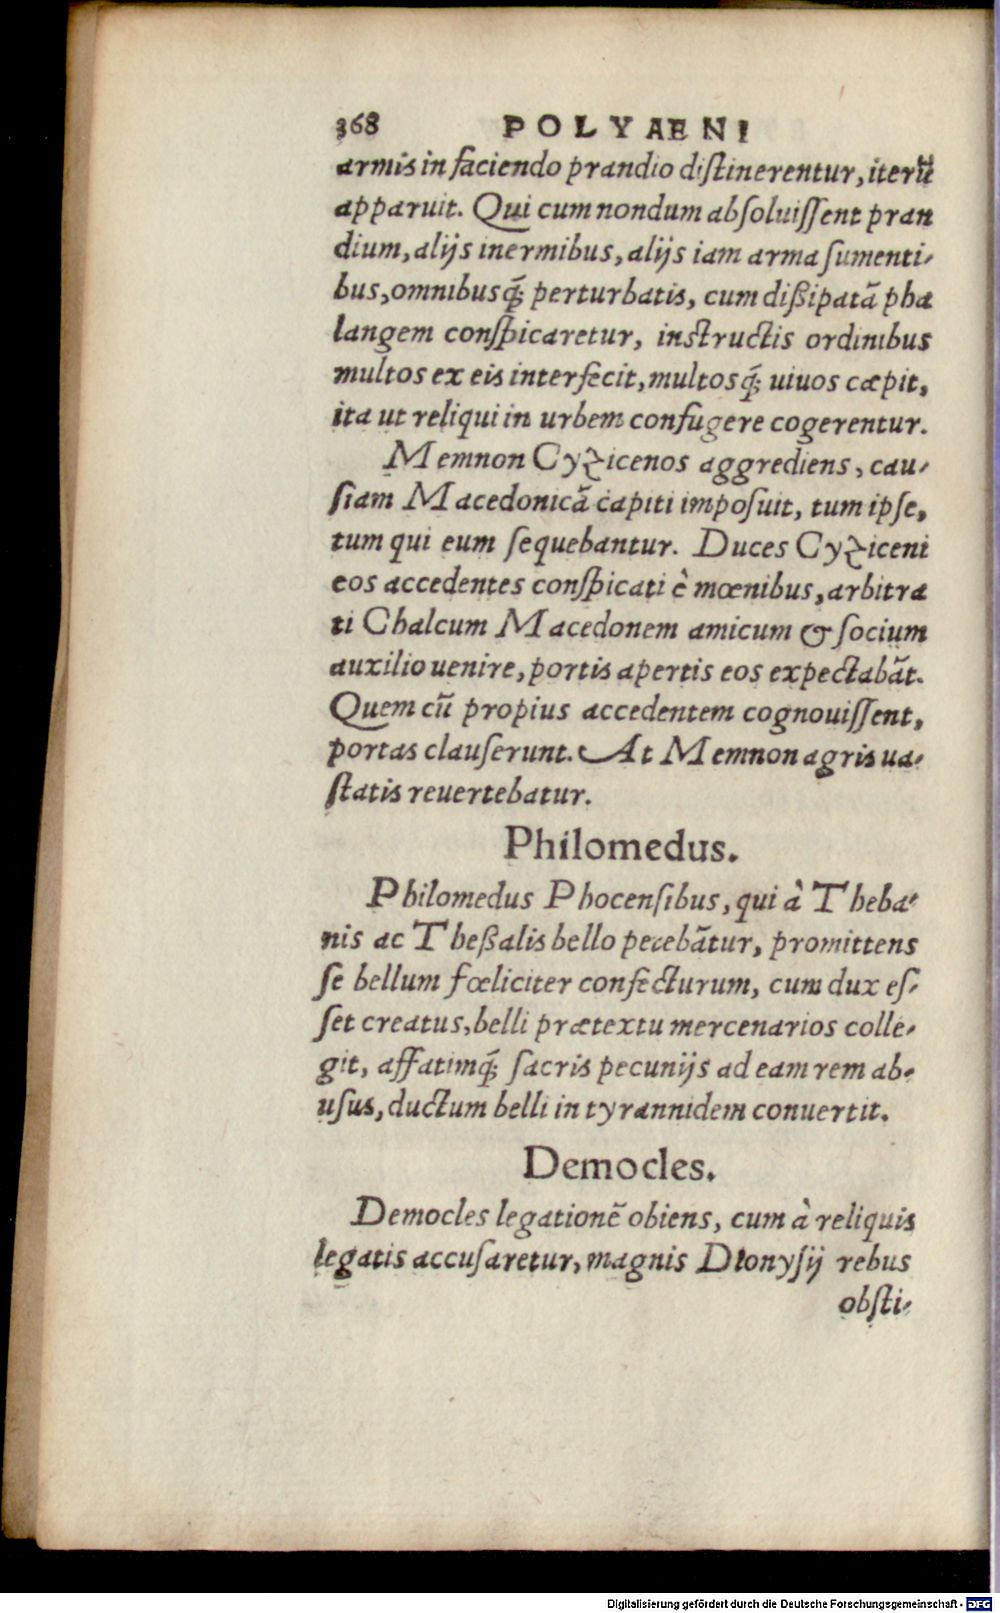 368 POLYAENI
armis in faciendo prandio diſtinerentur, iterū
apparuit. Qui cum nondum abſoluiſſent pran
dium, alijs inermibus, alijs iam arma ſumenti-
bus, omnibusq́; perturbatis, cum dißipatā pha
langem conſpicaretur, instructis ordinibus
multos ex eis interfecit, multosq́; uiuos cæpit,
ita ut reliqui in urbem confugere cogerentur.
Memnon Cyzicenos aggrediens, cau-
ſiam Macedonicā capiti impoſuit, tum ipſe,
tum qui eum ſequebantur. Duces Cyziceni
eos accedentes conſpicati è mœnibus, arbitra
ti Chalcum Macedonem amicum & ſocium
auxilio uenire, portis apertis eos expectabāt.
Quem cū propius accedentem cognouiſſent,
portas clauſerunt. At Memnon agris ua-
ſtatis reuertebatur.
Philomedus.
Philomedus Phocenſibus, qui à Theba-
nis ac Theßalis bello petebātur, promittens
ſe bellum fœliciter confecturum, cum dux eſ-
ſet creatus, belli prætextu mercenarios colle-
git, affatimq́; ſacris pecunijs ad eam rem ab-
uſus, ductum belli in tyrannidem conuertit.
Democles.
Democles legationē obiens, cum à reliquis
legatis accuſaretur, magnis Dionyſij rebus
obſti-
Digitalisierung gefördert durch die Deutsche Forschungsgemeinschaft - DFG